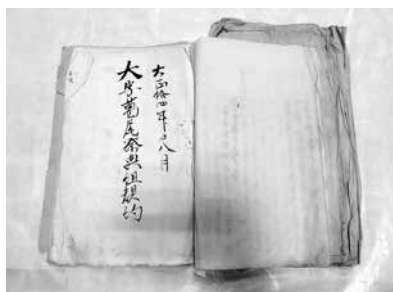 大正拾四年八月
大字葛尾祭典組規約